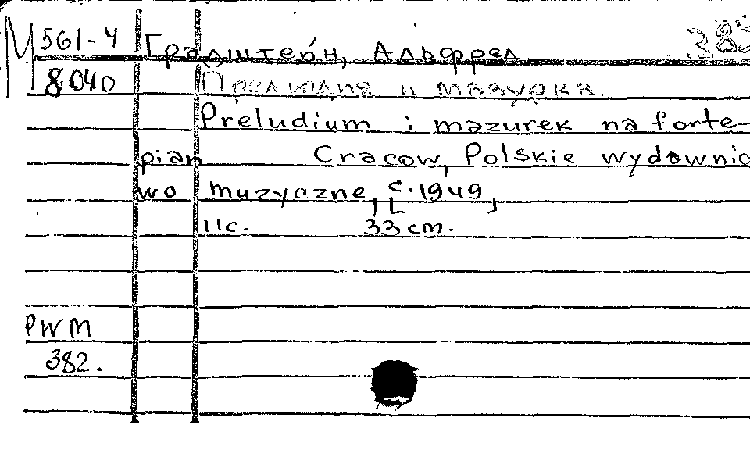 М561-4 Градштейн, Альфред
8040 Прелюдия и мазурка.
Preludium i mazurek na forte-
pian Cracow, Polskie wydawnic
wo muzyczne, [c.1949]
11c. 33 cm.
PWM
382.